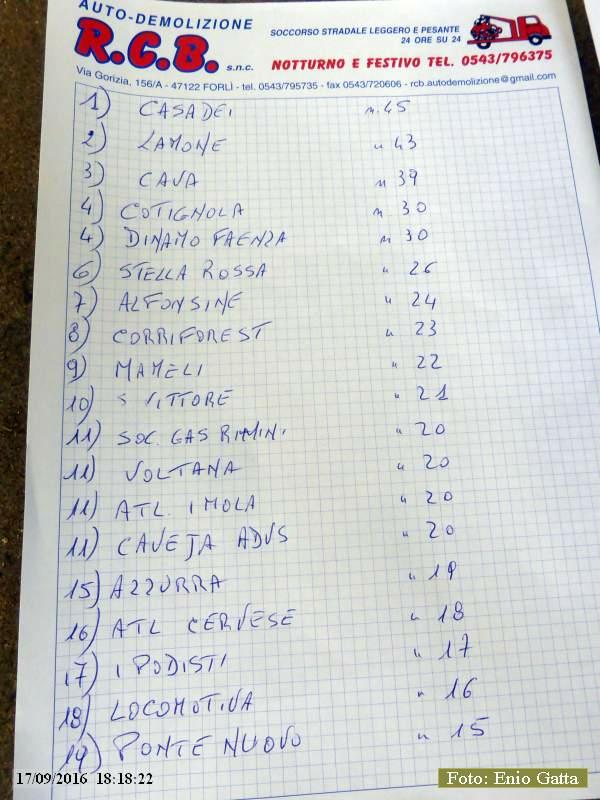 AUTO-DEMOLIZIONE
R.C.B. s.n.c.
SOCCORSO STRADALE LEGGERO E PESANTE
24 ORE SU 24
NOTTURNO E FESTIVO TEL. 0543/796375
Via Gorizia, 156/A - 47122 FORLÌ - tel. 0543/795735 - fax 0543/720606 - rcb.autodemolizione@gmail.com
1) CASADEI n. 45
2) LAMONE " 43
3) CAVA n 39
4) COTIGNOLA n 30
4) DINAMO FAENZA n 30
6) STELLA ROSSA " 26
7) ALFONSINE " 24
8) CORRIFOREST " 23
9) MAMELI " 22
10) S VITTORE " 21
11) SOC. GAS RIMINI " 20
11) VOLTANA " 20
11) ATL. IMOLA " 20
11) CAVEJA ADVS " 20
15) AZZURRA " 19
16) ATL CERVESE " 18
17) I PODISTI " 17
18) LOCOMOTIVA " 16
19) PONTE NUOVO " 15
17/09/2016 18:18:22
Foto: Enio Gatta